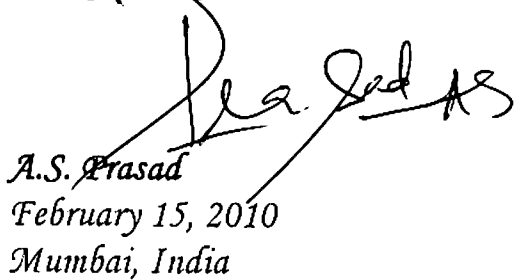 Pra. Sad AS
A.S. Prasad
February 15, 2010
Mumbai, India